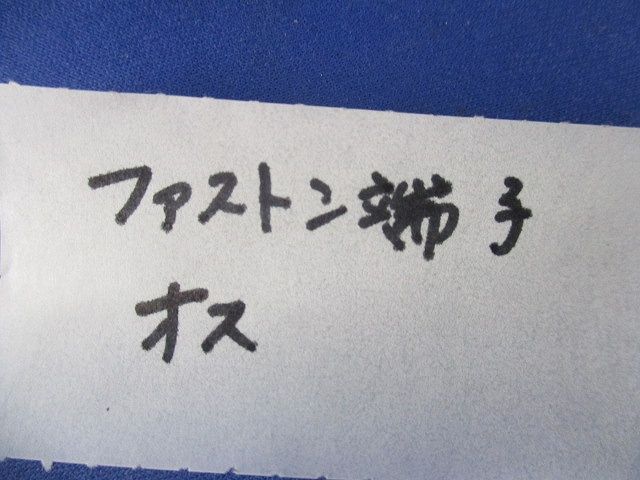 ファストン端子
オス